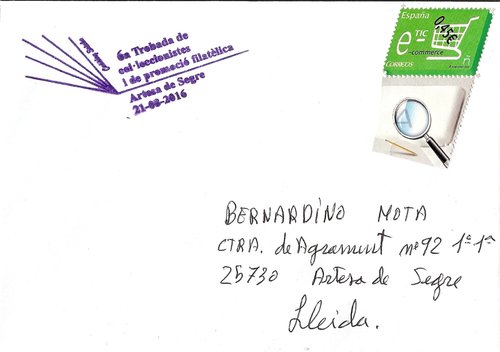 6a Trobada de
col·leccionistes
i de promoció filatèlica
Artesa de Segre
21-08-2016
España
TIC
e-commerce
CORREOS
BERNARDINO MOTA
CTRA. de Agramunt nº 92 1º 1ª
25730 Artesa de Segre
Lleida.